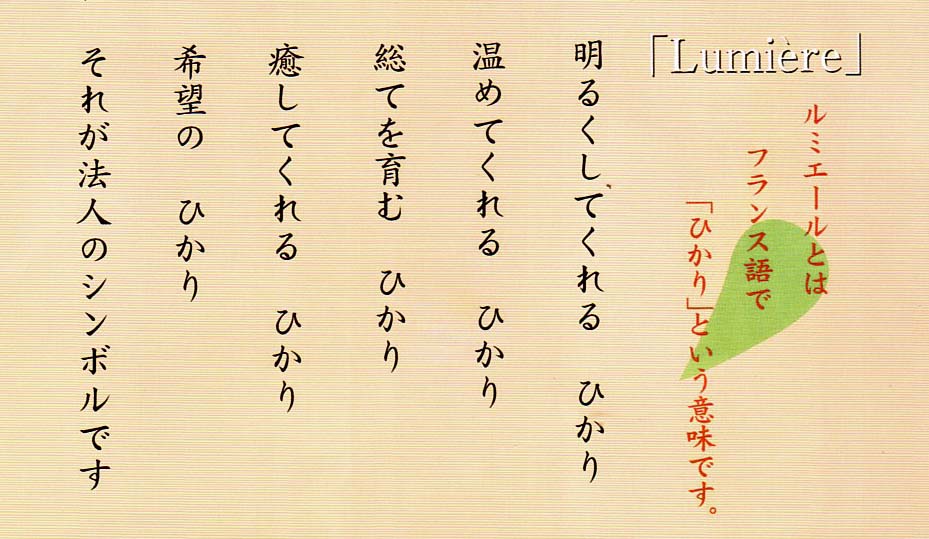 「Lumière」
ルミエールとは
フランス語で
「ひかり」という意味です。
明るくしてくれる　ひかり
温めてくれる　ひかり
総てを育む　ひかり
癒してくれる　ひかり
希望の　ひかり
それが法人のシンボルです